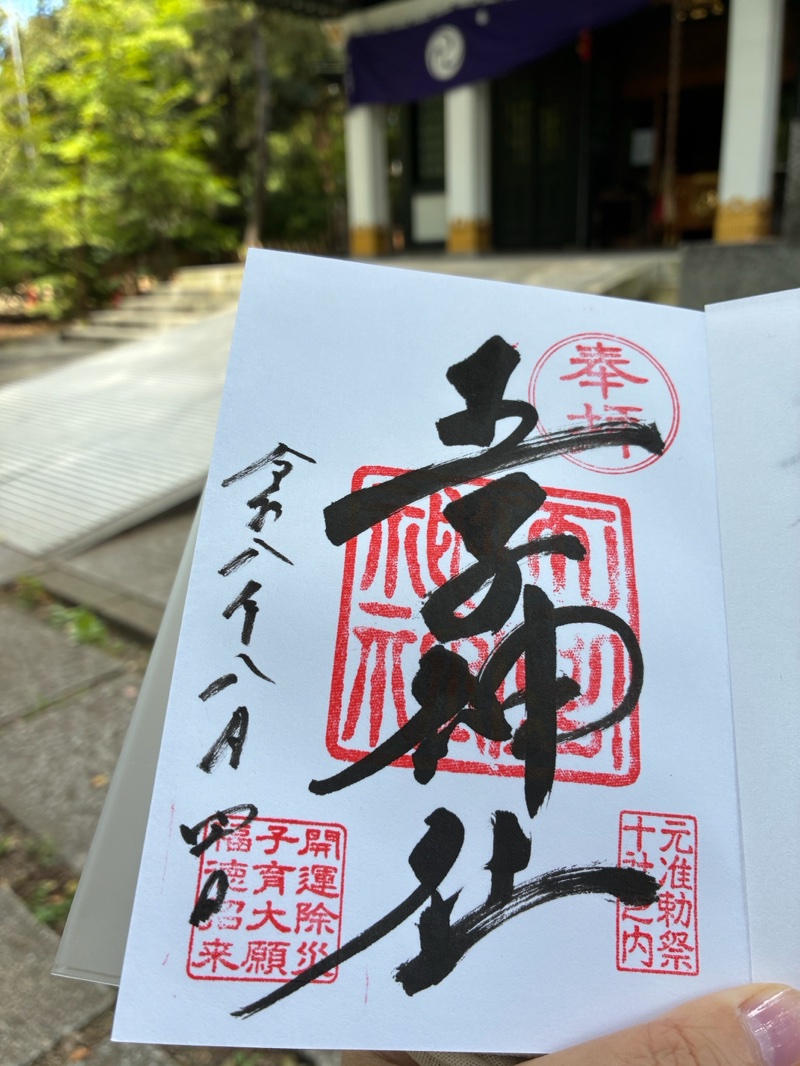 奉拝
王子神社
元准勅祭
十社之内
令和八年八月四日
開運除災
子育大願
福徳招来